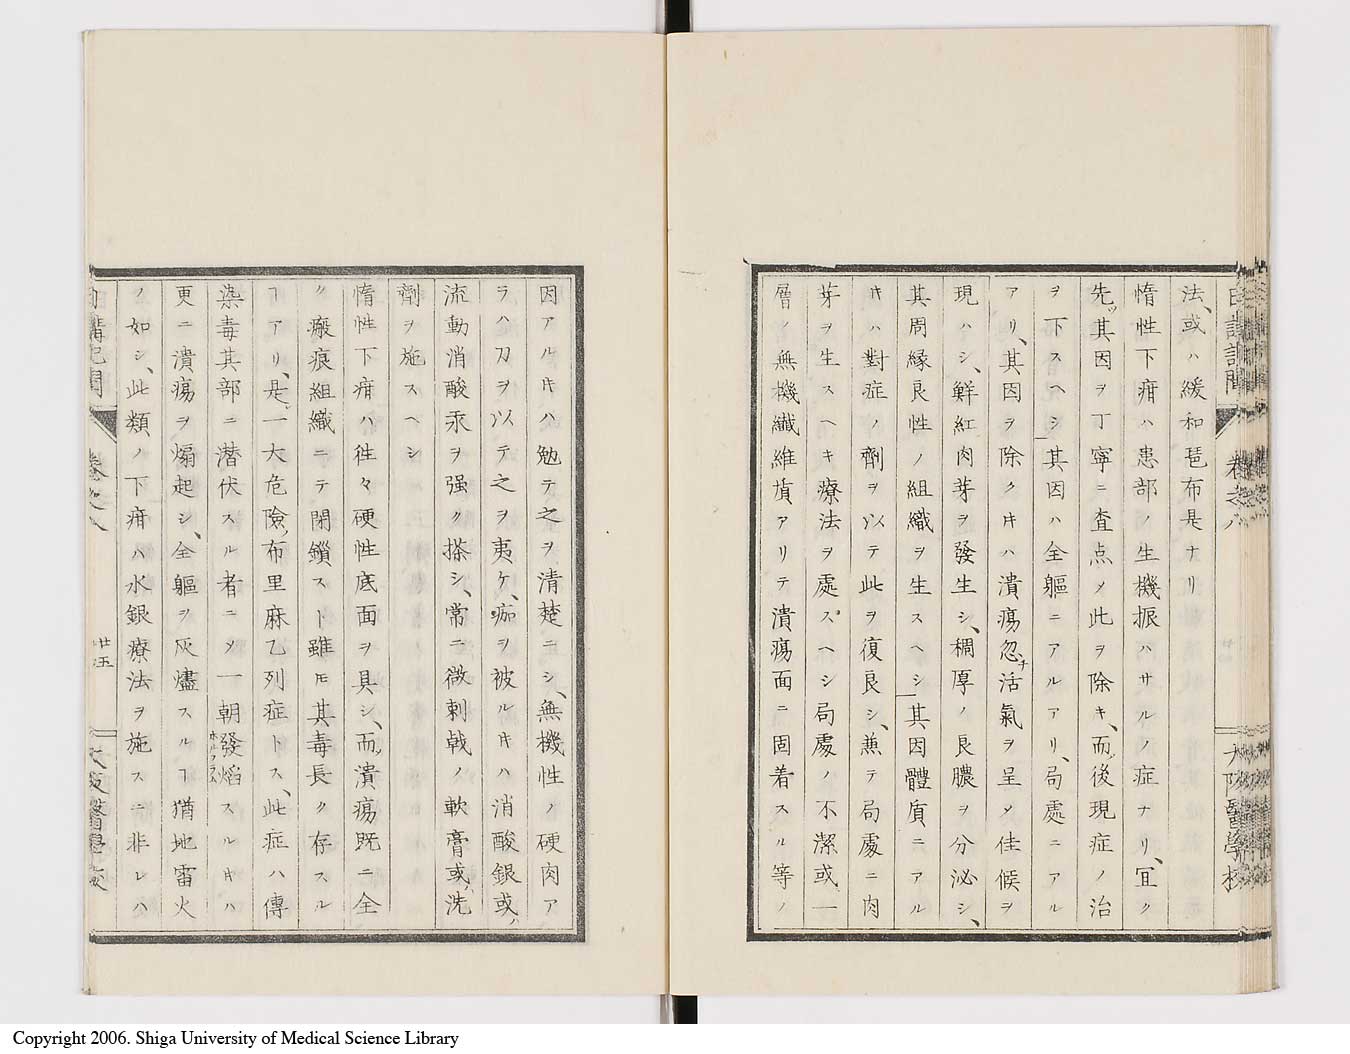 法、或ハ緩和琶布是ナリ
惰性下疳ハ患部ノ生機振ハサルノ症ナリ、宜ク
先ッ其因ヲ丁寧ニ査点メ此ヲ除キ、而後現症ノ治
ヲ下スヘシ其因ハ全軀ニアルアリ、局處ニアル
アリ、其因ヲ除クキハ潰瘍忽チ活氣ヲ呈メ佳候ヲ
現ハシ、鮮紅肉芽ヲ發生シ、稠厚ノ良膿ヲ分泌シ、
其周縁良性ノ組織ヲ生スヘシ其因體質ニアル
キハ對症ノ劑ヲ以テ此ヲ復良シ、兼テ局處ニ肉
芽ヲ生スヘキ療法ヲ處スヘシ局處ノ不潔或一
層ノ無機纖維質アリテ潰瘍面ニ固着スル等ノ
日講記聞 卷之八 大阪醫學校
因アルキハ勉テ之ヲ清楚ニシ、無機性ノ硬肉ア
ラハ刀ヲ以テ之ヲ夷ケ、痂ヲ被ルキハ消酸銀或ハ
流動消酸汞ヲ强ク搽シ、常ニ微刺戟ノ軟膏或洗
劑ヲ施スヘシ
惰性下疳ハ徃々硬性底面ヲ具シ、而潰瘍既ニ全
ク瘢痕組織ニテ閉鎖スト雖モ其毒長ク存スル
ヿアリ、是一大危險、布里麻乙列症トス、此症ハ傳
染毒其部ニ潜伏スル者ニメ一朝發焰スルキハ
更ニ潰瘍ヲ煽起シ、全軀ヲ灰燼スルヿ猶地雷火
ノ如シ、此類ノ下疳ハ水銀療法ヲ施スニ非レハ
日講記聞 卷之八 廿五 大阪醫學校
Copyright 2006. Shiga University of Medical Science Library